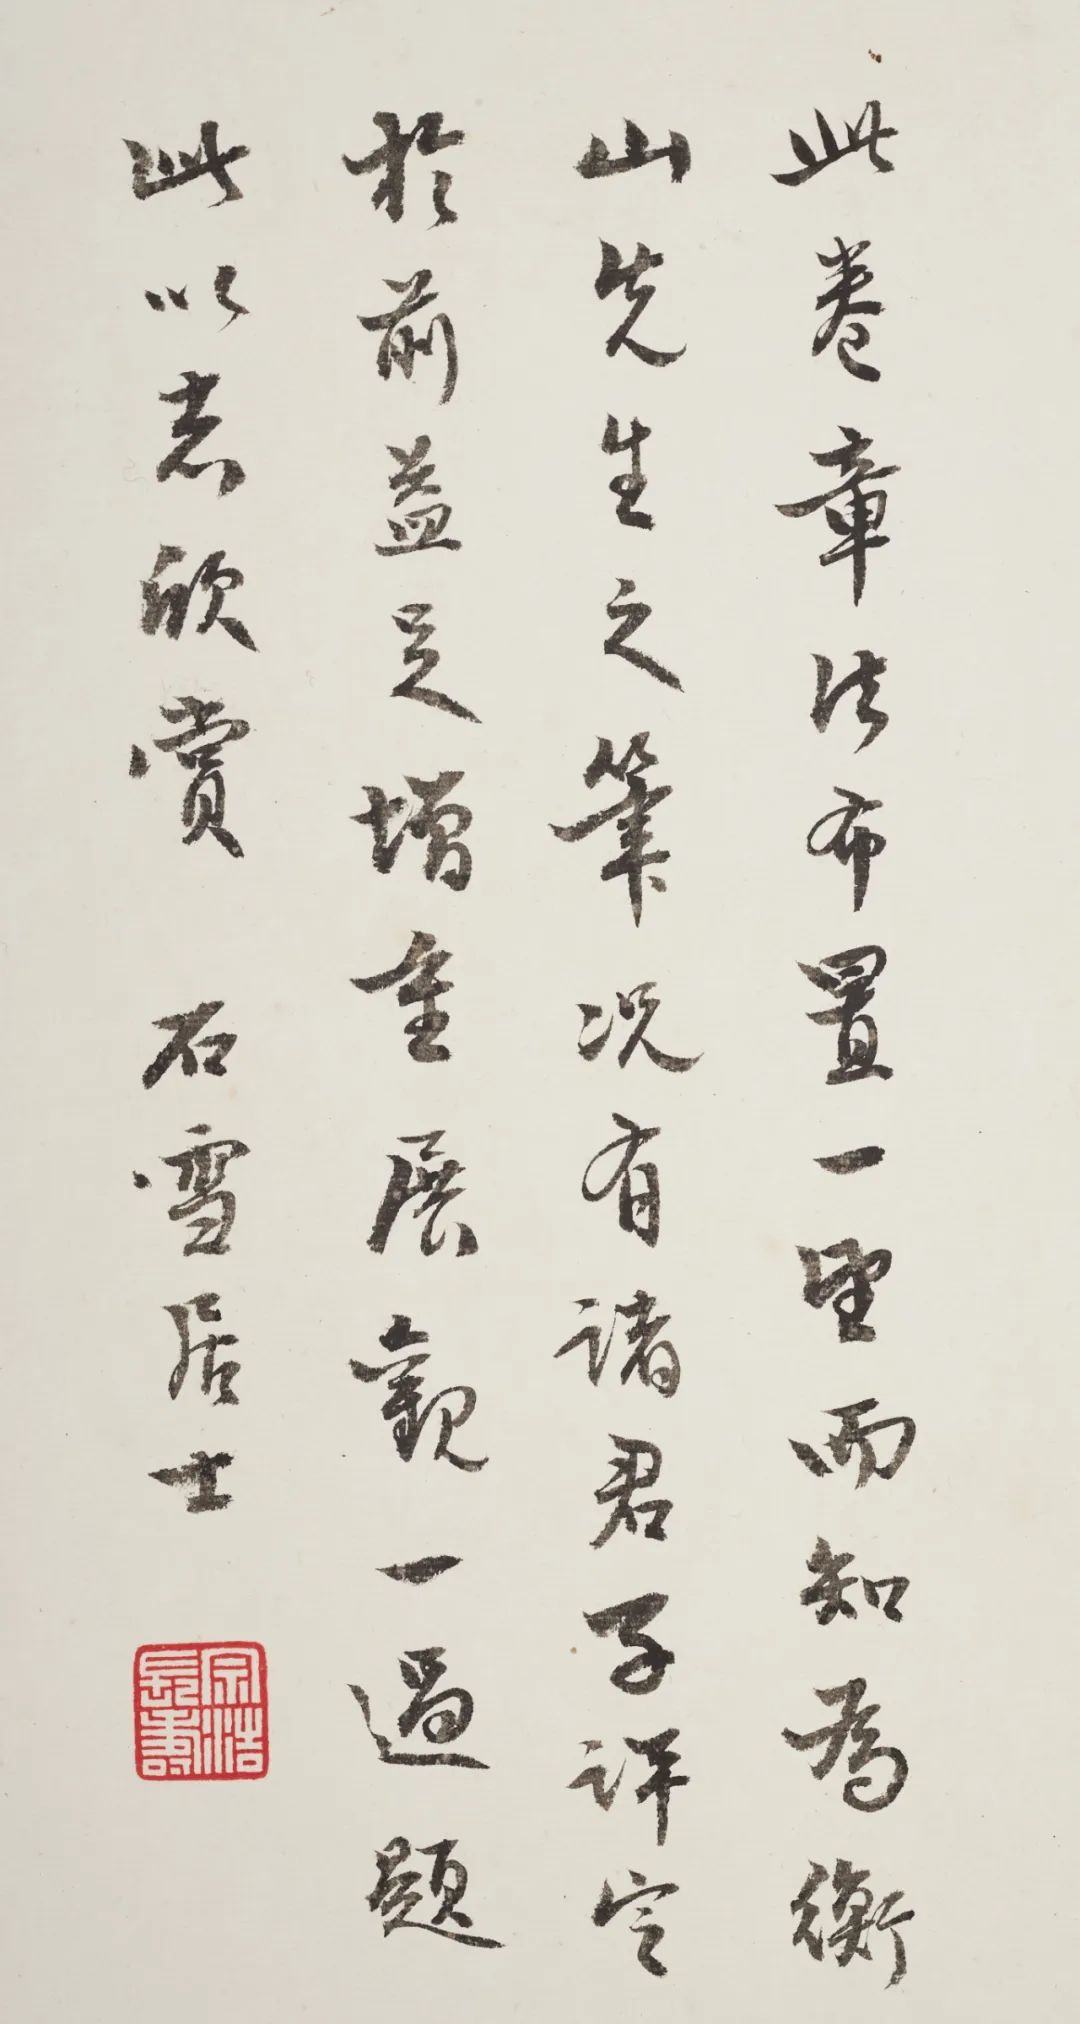 此卷章法布置一望而知为衡
山先生之筆况有诸君子詳定
於前益足增重展觀一過題
此以志欣賞 石雪居士
宗浩長壽